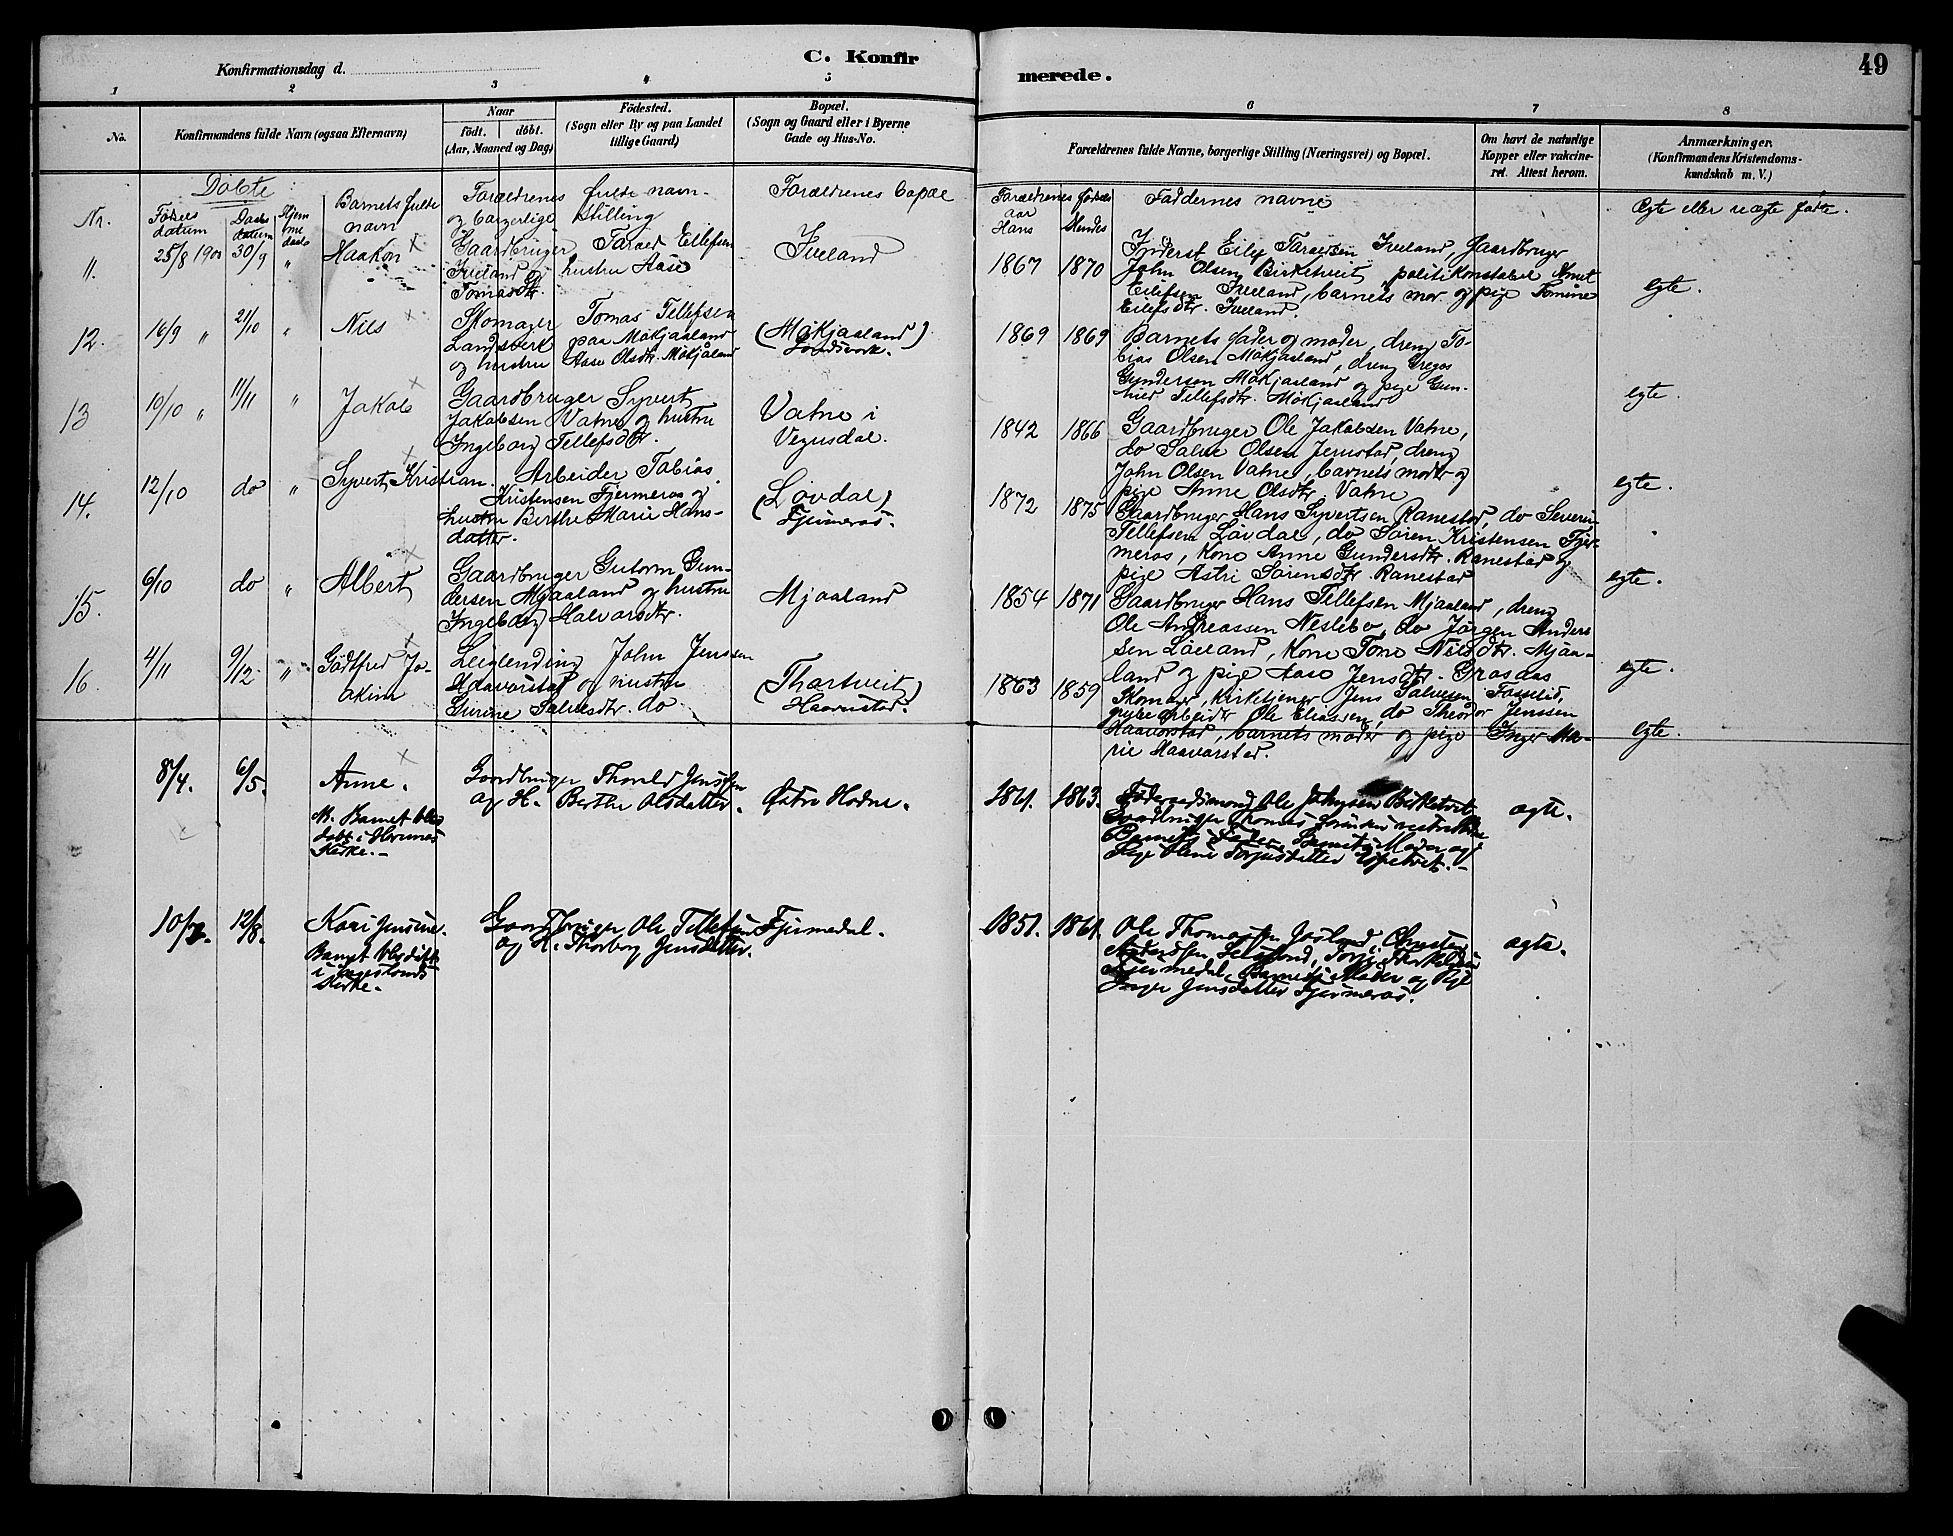 Konfirmationsdag d.
C. Konfirmerede.
49
1 2 3 4 5 6 7 8
No.
Konfirmandens fulde Navn (ogsaa Efternavn)
Naar
födt. döbt.
(Aar, Maaned og Dag)
Födested.
(Sogn eller By og paa Landet
tillige Gaard)
Bopæl.
(Sogn og Gaard eller i Byerne
Gade og Hus-No.
Forældrenes fulde Navne, borgerlige Stilling (Næringsvei) og Bopæl.
Om havt de naturlige
Kopper eller vakcine-
ret. Attest herom.
Anmærkninger.
(Konfirmandens Kristendoms-
kundskab m. V.)
Döbte
Nr.
Födsels
datum
Daabs
datum
Hjem
me
daab
Barnets fulde
navn
Foreldrenes fulde navn
og borgerlige stilling
Foreldrenes bopæl
Foreldrenes födsels
aar
Hans Hendes
Faddernes navne
Egte eller uegte født.
11. 25/8 1900 30/9 " Haakon
Gaardbruger Tarald Eilefsen
Iveland og hustru Aase
Tomasdtr.
Iveland
1867 1870
Inderst Eilef Taraldsen Iveland, Gaardbruger
John Olsen Birketveit, politikonstabel Knut
Eilefsen Iveland, barnets mor og pige Tomine
Eilefsdtr. Iveland.
egte.
12. 16/9 " 21/10 " Nils
Skomager Tomas Tellefsen
Landsverk paa Mökjaaland
og hustru Aase Olsdtr. Mökjåland
(Mökjaaland)
Landsverk.
1869 1869
Barnets fader og moder, dreng To-
bias Olsen Mökjaaland, dreng Gregos
Gundersen Mökjaaland og pige Gun-
hild Tellefsdtr. Mökjaaland
egte.
13 19/10 " 11/11 " Jakob
Gaardbruger Syvert
Jakobsen Vatne og hustru
Ingeborg Tellefsdtr.
Vatne i
Vegusdal.
1842 1866
Gaardbruger Ole Jakobsen Vatne,
do Salve Olsen Jerustad, dreng
John Olsen Vatne, barnets moder og
pige Anne Olsdtr. Vatne
egte.
14. 12/10 do " Syvert Kristian.
Arbeider Tobias
Kristensen Fjermeros og
hustru Berthe Marie Hans-
datter.
(Lövdal)
Fjermeros.
1872 1875
Gaardbruger Hans Syvertsen Ranestad, do Severin
Tellefsen Lövdal, do Sören Kristensen Fjer-
meros, Kone Anne Gundersdtr. Ranestad og
pige Astri Sörensdtr. Ranestad
egte.
15. 6/10 do " Albert
Gaardbruger Gutorm Gun-
dersen Mjaaland og hustru
Ingeborg Halvorsdtr.
Mjaaland
1854 1871
Gaardbruger Hans Tellefsen Mjaaland, dreng
Ole Andreassen Neslebo, do Jörgen Anders
sen Löland, Kone Tone Nilsdtr. Mjaa-
land og pige Aase Jensdtr. Grosdas
egte.
16. 4/11 9/12 " Godtfred Jo-
akim
Leilending John Jenssen
Haavorstad og hustru
Gurine Salvesdtr. do
(Thortveit)
Haavorstad.
1863 1859
Skomager, Kirketjener Jens Salvesen Fosselid,
grubearbeider Ole Eliassen, do Theodor Jenssen
Haavorstad, barnets moder og pige Inger Ma-
rie Haavorstad.
egte.
8/4. 6/5. Anne.
Gaardbruger Jensen
og H. Berthe Olsdatter.
Östre Hodne.
1861. 1863.
Föderaadsmand Ole Birketveit
Gaardbruger Thomas
Barnets Fader, Barnets Moder og
Pige Olene Torjusdatter
ægte.
Barnet blev
döbt i
Kirke.
10/7. 12/8. Kari Jensine.
Gaardbruger Ole Tellefsen
og H. Thorborg Jensdatter.
Fjermedal.
1851. 1861.
Ole Thomassen
Fjermedal, Barnets Moder og Pige
Inger Jensdatter Fjermeros.
ægte.
Barnet blev döbt
i
Kirke.